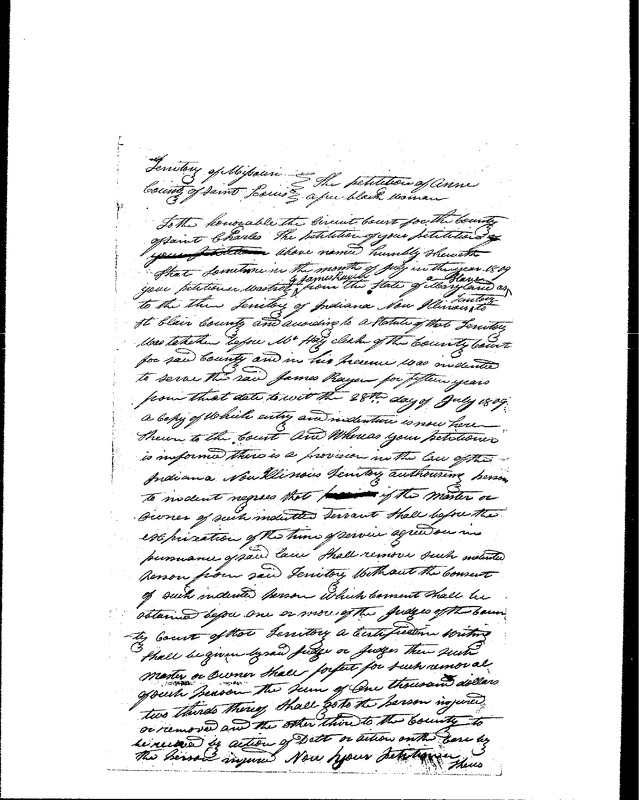 Territory of Missouri The petition of Anne
County of Saint Louis a free black woman
To the honorable the Circuit Court for the County
of Saint Charles The petition of your petitioner
above named humbly sheweth
That Sometime in the month of July in the year 1809
your petitioner was by James Rayen from the State of Maryland a Slave as
to the then Territory of Indiana Now Illinois Territory to
St Clair County and according to a Statute of that Territory
was taken before Mr Hay clerk of the County Court
for said County and in his presence was indented
to serve the said James Rayen for fifteen years
from that date to wit the 28th day of July 1809.
a Copy of which entry and indenture is now here
shewn to the Court And Whereas your petitioner
is informed there is a provision in the law of the
Indiana Now Illinois Territory authorising persons
to indent negroes that if the Master or
owner of such indented Servant Shall before the
expiration of the time of service agreed on in
pursuance of said law Shall remove such indented
person from said Territory Without the Consent
of such indented person Which Consent shall be
obtained before one or more of the Judges of the Coun
ty Court of that Territory a Certificate in writing
Shall be given by said Judge or Judges then such
Master or owner Shall forfeit for such removal
of such person the sum of One thousand dollars
two thirds thereof Shall go to the person injured
or removed and the other third to the County to
be recovered by action of Debt or action on the Case by
the person injured Now your petitioner